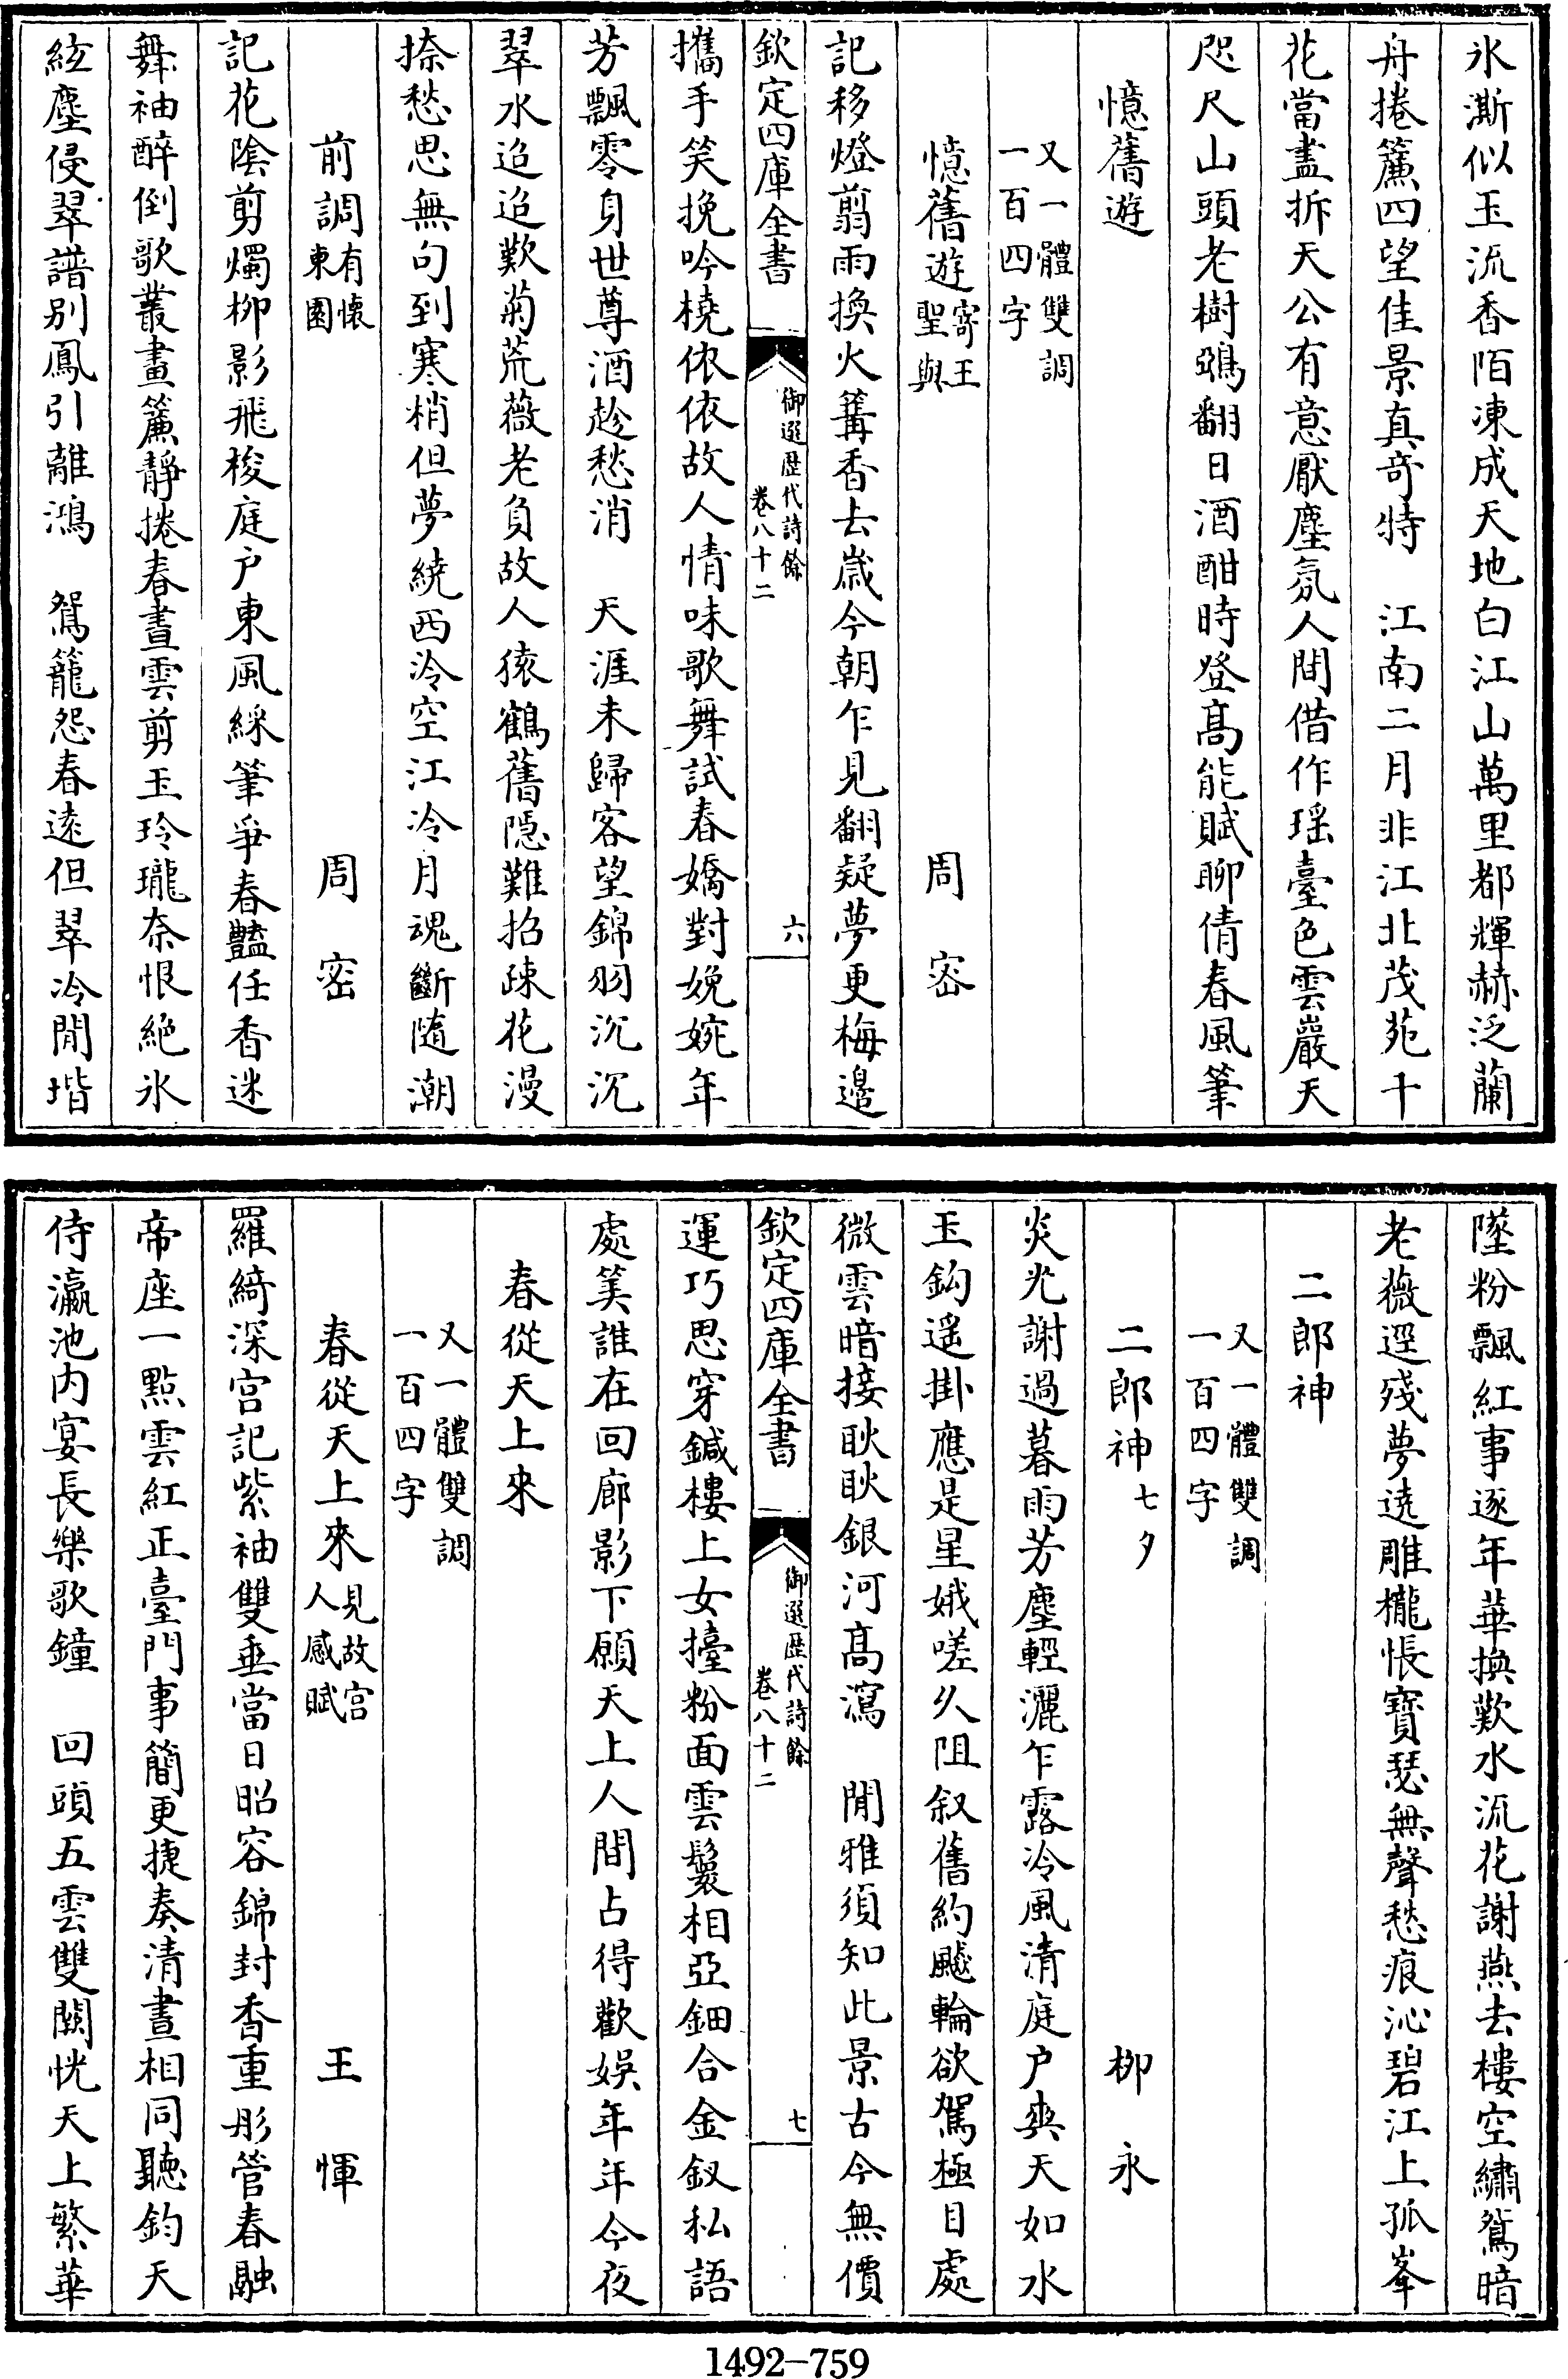 氷澌似玉流香陌凍成天地白江山萬里都輝赫泛蘭
舟捲簾四望佳景真奇特　江南二月非江北茂苑千
花當盡拆天公有意厭塵氛人間借作瑶臺色雲巖天
咫尺山頭老樹鵶翻日酒酣時登髙能賦聊倩春風筆
憶舊遊
又一體雙調
一百四字
憶舊遊寄王聖與　周密
記移燈翦雨換火篝香去歳今朝乍見翻疑夢更梅邉
欽定四庫全書
御選歴代詩餘
卷八十二
六
攜手笑挽吟橈依依故人情味歌舞試春嬌對婉娩年
芳飄零身世尊酒趁愁消　天涯未歸客望錦羽沉沉
翠水迢迢歎菊荒薇老負故人猿鶴舊隠難招疎花漫
捺愁思無句到寒梢但夢繞西泠空江冷月魂斷隨潮
前調有懐東園　周密
記花陰剪燭栁影飛梭庭户東風綵筆爭春豔任香迷
舞袖醉倒歌叢畫簾靜捲春晝雲剪玉玲瓏奈恨絶氷
絃塵侵翠譜别鳳引離鴻　鴛籠怨春逺但翠冷閒堦
墜粉飄紅事逐年華換歎水流花謝燕去樓空繡鴛暗
老薇逕殘夢遶雕櫳悵寳瑟無聲愁痕沁碧江上孤峯
二郎神
又一體雙調
一百四字
二郎神七夕　栁永
炎光謝過暮雨芳塵輕灑乍露冷風清庭户爽天如水
玉鈎遥掛應是星娥嗟久阻叙舊約飈輪欲駕極目處
微雲暗接耿耿銀河髙瀉　閒雅須知此景古今無價
欽定四庫全書
御選歴代詩餘
卷八十二
七
運巧思穿鍼樓上女擡粉面雲鬟相亞鈿合金釵私語
處筭誰在回廊影下願天上人間占得歡娛年年今夜
春從天上來
又一體雙調
一百四字
春從天上來見故宫人感賦　王惲
羅綺深宫記紫袖雙垂當日昭容錦封香重彤管春融
帝座一點雲紅正臺門事簡更捷奏清晝相同聽鈞天
侍瀛池内宴長樂歌鐘　回頭五雲雙闕恍天上繁華
1492-759